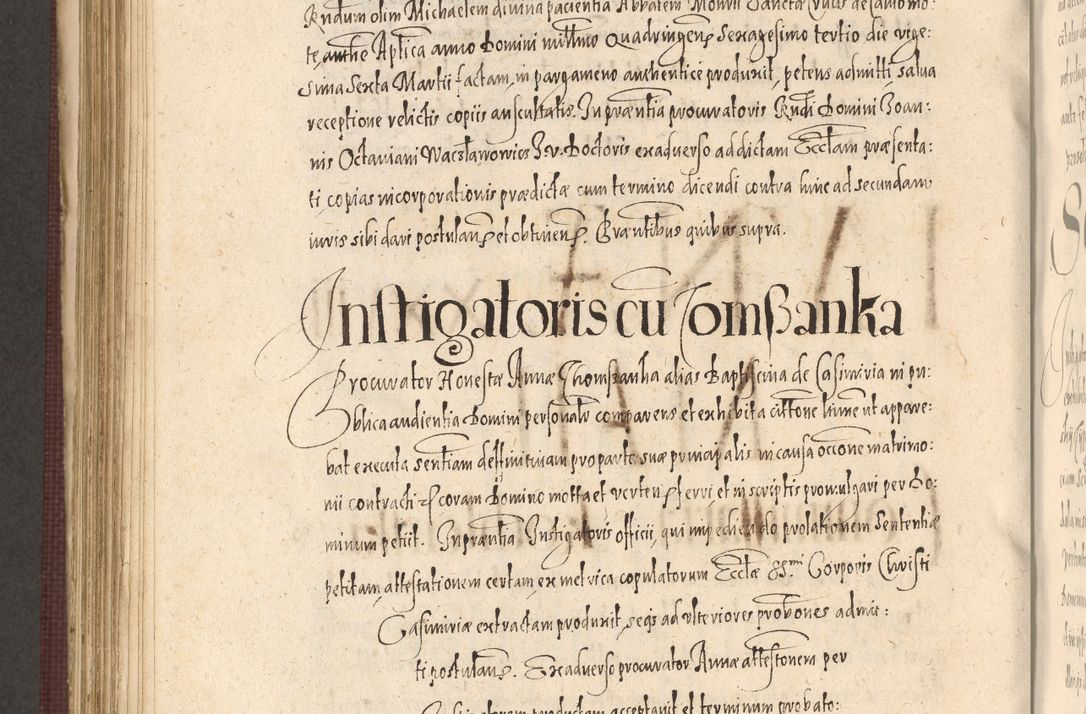 Rndum olim Michaelem divina pacientia Abbatem Montis Sanctæ Crucis de calvo mo:
te, anthe Aptica anno Domini millmo Quadringen Sexagesimo tertio die vige:
sima Sexta Martii factam, in pargameno authentice produxit, petens admitti salva
receptione relictis copiis auscultatis. In præntia procuratoris Rndi Domini Joan:
nis Octaviani Waczlawowics J. v. Doctoris ex adverso addictam Eccłam præsenta:
ti, copias incorporationis prædictæ cum termino dicendi contra hinc ad secundam
iuris sibi dari postulan et obtinen. Præntibus quibus supra.
Instigatoris cu Tomszanka
Procurator Honestæ Annæ Thomszanka alias Baptiscina de Casimiria in pu:
blica audientia Domini personalr comparens et exhibita cittone hinc ut appare:
bat executa sentiam deffinitivam pro parte suæ principalis in causa occone matrimo:
nii contracti &c coram Domino motta et verten ferri et in scriptis promulgari per Do:
minum petiit. In præntia Instigatoris officii, qui impediendo prolationem Sententiæ
petitam, attestationem certam, ex metrica copulatorum Ecclæ SS.mi Corporis Christi
Casimiriæ extractam produxit, seqs ad ulteriores probones admit:
ti postulan. Ex adverso procurator Annæ attestonem per
Instigatorem productam acceptavit et terminum probato: